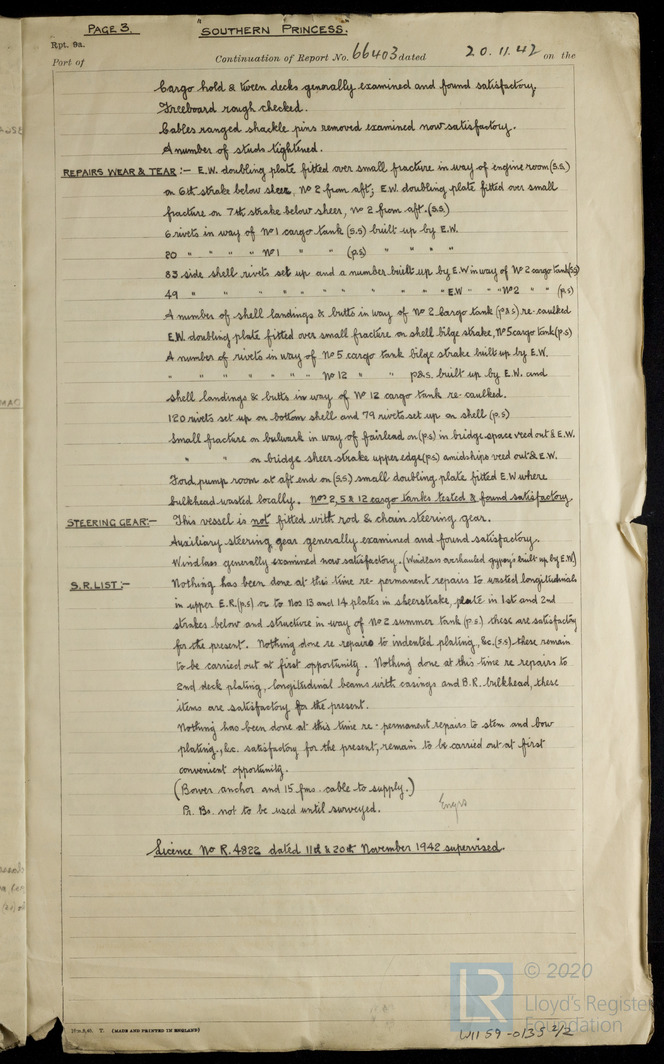 PAGE 3. "SOUTHERN PRINCESS."
Rpt. 9a.
Port of Continuation of Report No. 66403 dated 20.11.42 on the
Cargo hold & tween decks generally examined and found satisfactory.
Freeboard rough checked.
Cables ranged shackle pins removed examined now satisfactory.
A number of studs tightened.
REPAIRS WEAR & TEAR:- E.W. doubling plate fitted over small fracture in way of engine room (s.s.)
on 6th strake below sheer, No 2 from aft; E.W. doubling plate fitted over small
fracture on 7th strake below sheer, No 2 from aft. (s.s.)
6 rivets in way of No 1 cargo tank (s.s) built up by E.W.
20 " " " " No 1 " " (p.s) " " " "
83 side shell rivets set up and a number built up by E.W in way of No 2 cargo tank (s.s)
49 " " " " " " " " " " E.W " " No 2 " " (p.s)
A number of shell landings & butts in way of No 2 cargo tank (p&s) re-caulked
E.W. doubling plate fitted over small fracture on shell bilge strake, No 5 cargo tank (p.s)
A number of rivets in way of No 5 cargo tank bilge strake built up by E.W.
" " " " " " " No 12 " " p&s. built up by E.W. and
shell landings & butts in way of No 12 cargo tank re-caulked.
120 rivets set up on bottom shell and 79 rivets set up on shell (p.s)
Small fracture on bulwark in way of fairlead on (p.s) in bridge space veed out & E.W.
" " on bridge sheer strake upper edge (p.s) amidships veed out & E.W.
Ford pump room at aft end on (s.s) small doubling plate fitted E.W where
bulkhead wasted locally. Nos 2, 5 & 12 cargo tanks tested & found satisfactory.
STEERING GEAR:- This vessel is not fitted with rod & chain steering gear.
Auxiliary steering gear generally examined and found satisfactory.
Windlass generally examined now satisfactory. (Windlass overhauled gypsy's built up by E.W)
S.R. LIST:- Nothing has been done at this time re- permanent repairs to wasted longitudinals
in upper E.R. (p.s) or to Nos 13 and 14 plates in sheerstrake, plate in 1st and 2nd
strakes below and structure in way of No 2 summer tank (p.s.) these are satisfactory
for the present. Nothing done re repairs to indented plating, &c. (s.s) these remain
to be carried out at first opportunity. Nothing done at this time re repairs to
2nd deck plating, longitudinal beams with casings and B.R. bulkhead, these
items are satisfactory for the present.
Nothing has been done at this time re- permanent repairs to stem and bow
plating, &c. satisfactory for the present, remain to be carried out at first
convenient opportunity.
(Bower anchor and 15 fms. cable to supply.)
Pt. Bs. not to be used until surveyed. Engrs
Licence No R. 4822 dated 11th & 20th November 1942 supervised.
T. (MADE AND PRINTED IN ENGLAND)
LR © 2020
Lloyd's Register
Foundation
W1159-0135 2/2